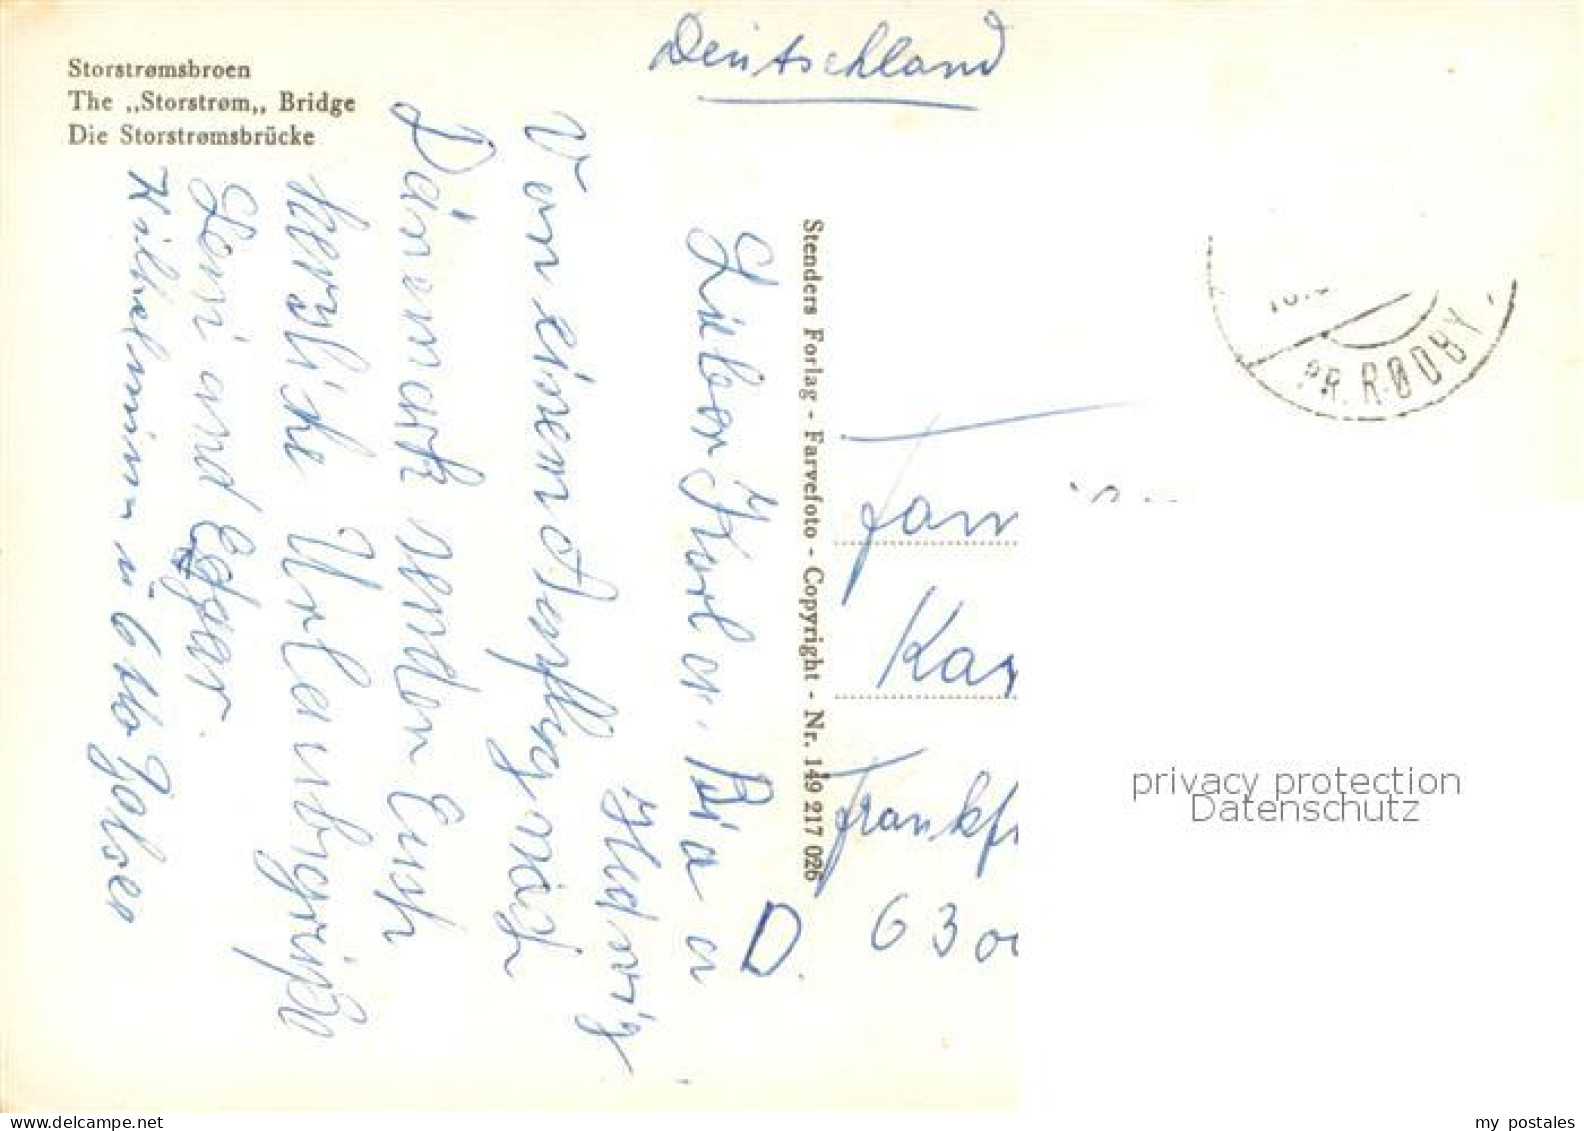 Storstrømsbroen
The „Storstrøm„ Bridge
Die Storstrømsbrücke
Deutschland
Lieber Karl u. Bia u
Hedwig
Von einem Ausflug nach
Dänemark senden Euch
herzliche Urlaubsgrüße
Leni und Edgar.
Wilhelmine u. Otto
Stenders Forlag - Farvefoto - Copyright - Nr. 149 217 026
PR. RØDBY
Fam
Kar
Frankf
D. 6300
privacy protection
Datenschutz
my postales
www.delcampe.net